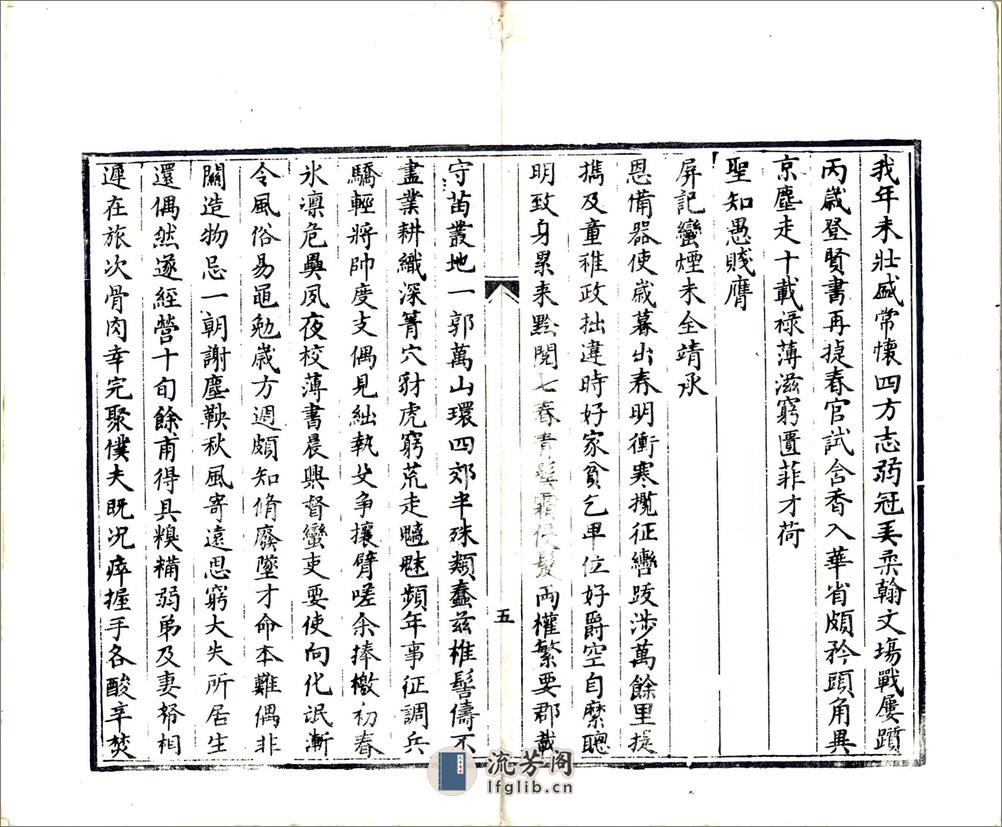 我年未壯盛常懷四方志弱冠弄柔翰文場戰屢躓
丙歲登賢書再捷春官試含香入華省頗矜頭角異
京塵走十載祿薄滋窮匱菲才荷
聖知愚賤膺
屏記蠻煙未全靖承
恩備器使歲暮出春明衝寒攬征轡跋涉萬餘里提
攜及童稚政拙違時好家貧乞卑位好爵空自縻聰
明致身累來黔閱七春青鬢霜侵髮兩權繁要郡載
五
守苗叢地一郭萬山環四郊半殊類蠢茲椎髻儔不
盡業耕織深箐穴豺虎窮荒走魑魅頻年事征調兵
驕輕將帥度支偶見絀執殳爭攘臂嗟余捧檄初春
氷凜危興夙夜校薄書晨興督蠻吏要使向化氓漸
令風俗易黽勉歲方週頗知脩廢墜才命本難偶非
關造物忌一朝謝塵鞅秋風寄遠思窮大失所居生
還偶然遂經營十旬餘甫得具糗糒弱弟及妻帑相
遲在旅次骨肉幸完聚僕夫既況瘁握手各酸辛焚
流芳阁
lfglib.cn